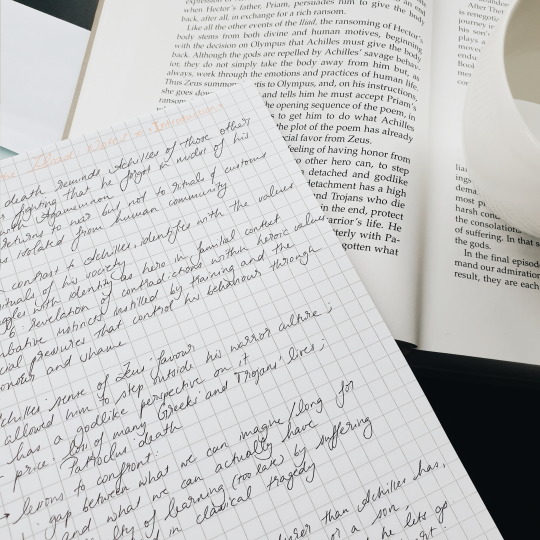 when Hector's father, Priam, persuades him to give the body
back, after all, in exchange for a rich ransom.
Like all the other events of the Iliad, the ransoming of Hector's
body stems from both divine and human motives, beginning
with the decision on Olympus that Achilles must give the body
back. Although the gods are repelled by Achilles' savage behav-
ior, they do not simply take the body away from him but, as
always, work through the emotions and practices of human life.
Thus Zeus summons Thetis to Olympus, and, on his instructions,
she goes down and tells him he must accept Priam's
ransom
the opening sequence of the poem, in
s to get him to do what Achilles
the plot of the poem has already
cial favor from Zeus.
feeling of having honor from
o other hero can, to step
detached and godlike
detachment has a high
and Trojans who die
in the end, protect
arrior's life. He
terly with Pa-
gotten what
After
is renegotia
journey
his son's
plays a
move
enda
Book
liar
ings
dema
most p
harsh cond
the consolation
of suffering. In that s
the gods.
In the final episode
mand our admiration
result, they are each
the Iliad Introduction
death reminds Achilles of those other
fighting that he forgot in midst of his
with Agamemnon
returns to war but not to rituals & customs
isolated from human community
contrast to Achilles, identifies with the values
rituals of his society
ggles with identity as hero in familial context
6: revelation of contradictions within heroic values
mbative instincts instilled by training and the
cial pressures that control his behaviour through
onour and shame
Achilles' sense of Zeus' favour
allowed him to step outside his warrior culture;
has a godlike perspective on it
price: loss of many Greeks' and Trojans' lives;
Patroclus' death
→ lessons to confront:
gap between what we can imagine/long for
and what we can actually have
lty of learning (too late) by suffering
d in classical tragedy
than Achilles has,
or a son,
he lets go